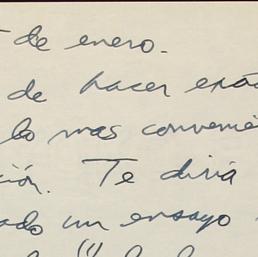 de enero.
de hacer
lo mas convenie
ción. Te diria
ado un ensayo